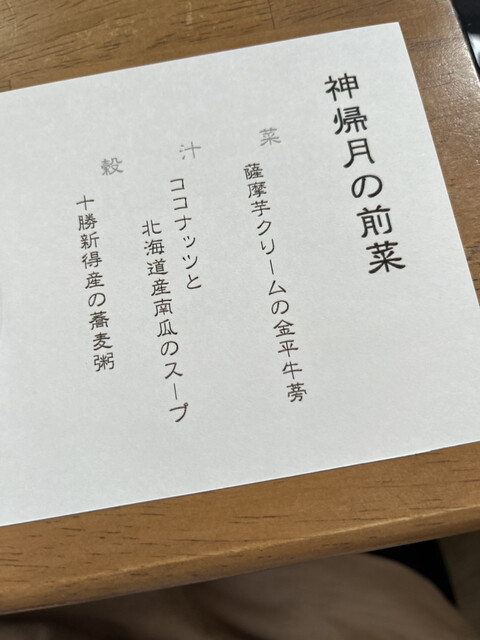 神帰月の前菜
菜
薩摩芋クリームの金平牛蒡
汁
ココナッツと
北海道産南瓜のスープ
穀
十勝新得産の蕎麦粥